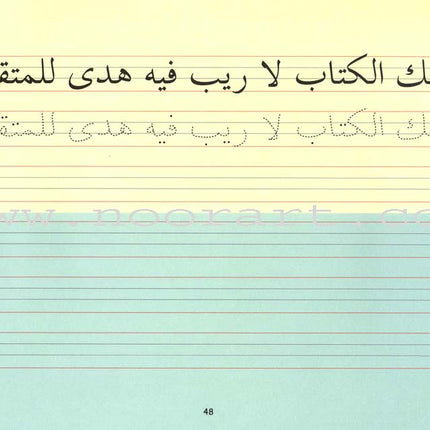 ـك الكتاب لا ريب فيه هدى للمتقـ
ـك الكتاب لا ريب فيه هدى للمتقـ
www.noorart.co
48